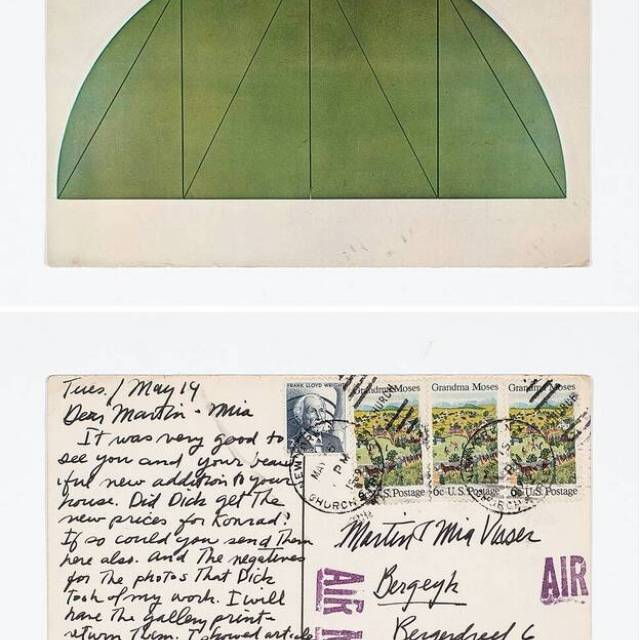 Tues./May 19
Dear Martin - Mia
It was very good to
see you and your beau
iful new addition to your
house. Did Dick get The
new prices for Konrad?
If so could you send Them
here also. And The negatives
for The photos That Dick
Took of my work. I will
have The gallery print -
return Them. I showed article
FRANK LLOYD WRIGHT
Grandma Moses
6c U.S. Postage
Grandma Moses
6c U.S. Postage
Grandma Moses
6c U.S. Postage
NEW
MAY
PM
CHURCH
Martin & Mia Visser
Bergeyk
Bergerdreef 6
AIR
AIR